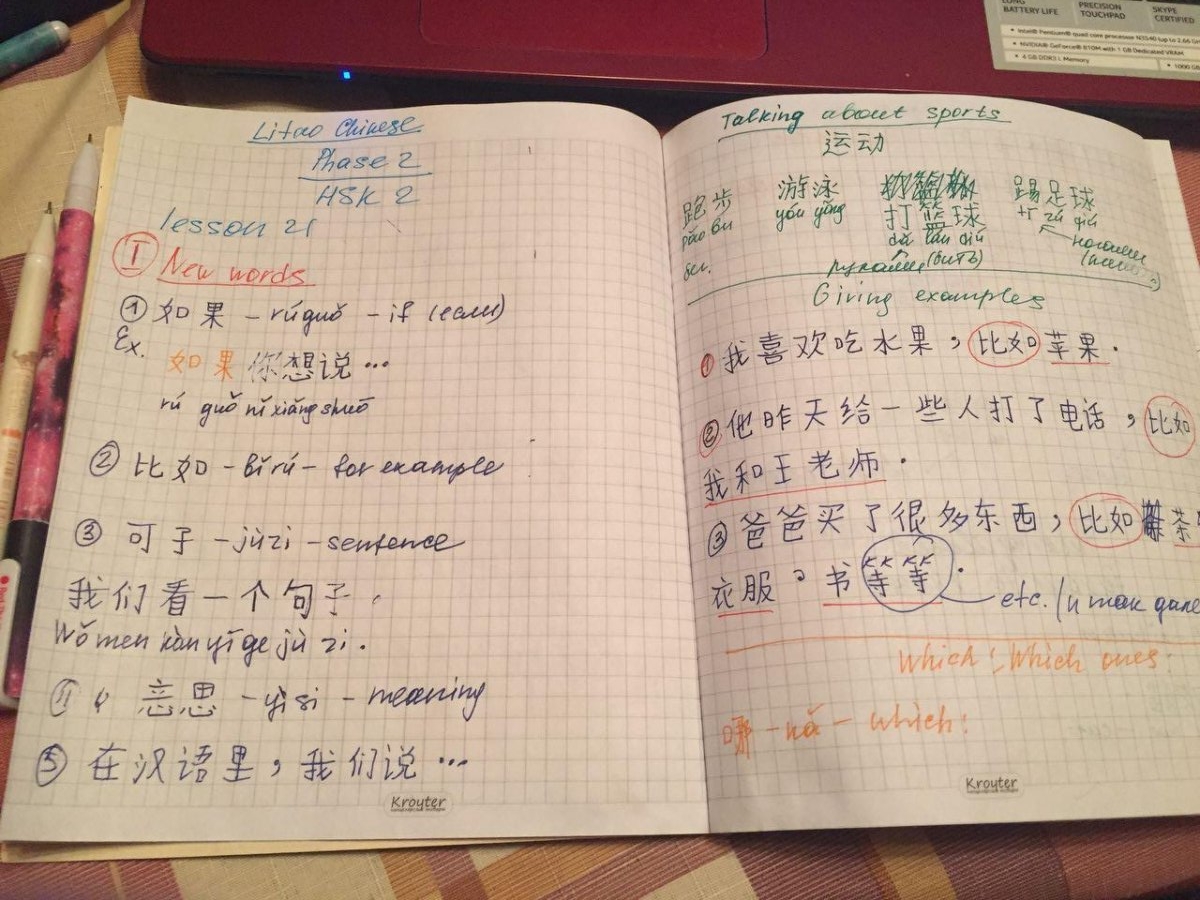 LONG
BATTERY LIFE
PRECISION
TOUCHPAD
SKYPE
CERTIFIED
• Intel® Pentium® quad core processor N3540 (up to 2.66 GH
• NVIDIA® GeForce® 810M with 1 GB Dedicated VRAM
• 4 GB DDR3 L Memory
• 1000 GB
Litao Chinese
Phase 2
HSK 2
lesson 21
I New words
① 如果 – rúguǒ – if (если)
Ex.
如果你想说…
rú guǒ nǐ xiǎng shuō
② 比如 – bǐrú – for example
③ 可子 – jùzi – sentence
我们看一个句子.
Wǒmen kàn yīge jù zi.
意思 – yìsi – meaning
⑤ 在汉语里，我们说…
Krouter
Talking about sports
运动
跑步 游泳 打篮球 踢足球
pǎo bù yóu yǒng dǎ lán qiú tī zú qiú
руками (бить) ногами
Giving examples
① 我喜欢吃水果，比如苹果.
② 他昨天给一些人打了电话，比如
我和王老师.
③ 爸爸买了很多东西，比如 茶
衣服。书等等.
etc. (и так дале
Which; Which ones
哪 – nǎ – which:
Krouter